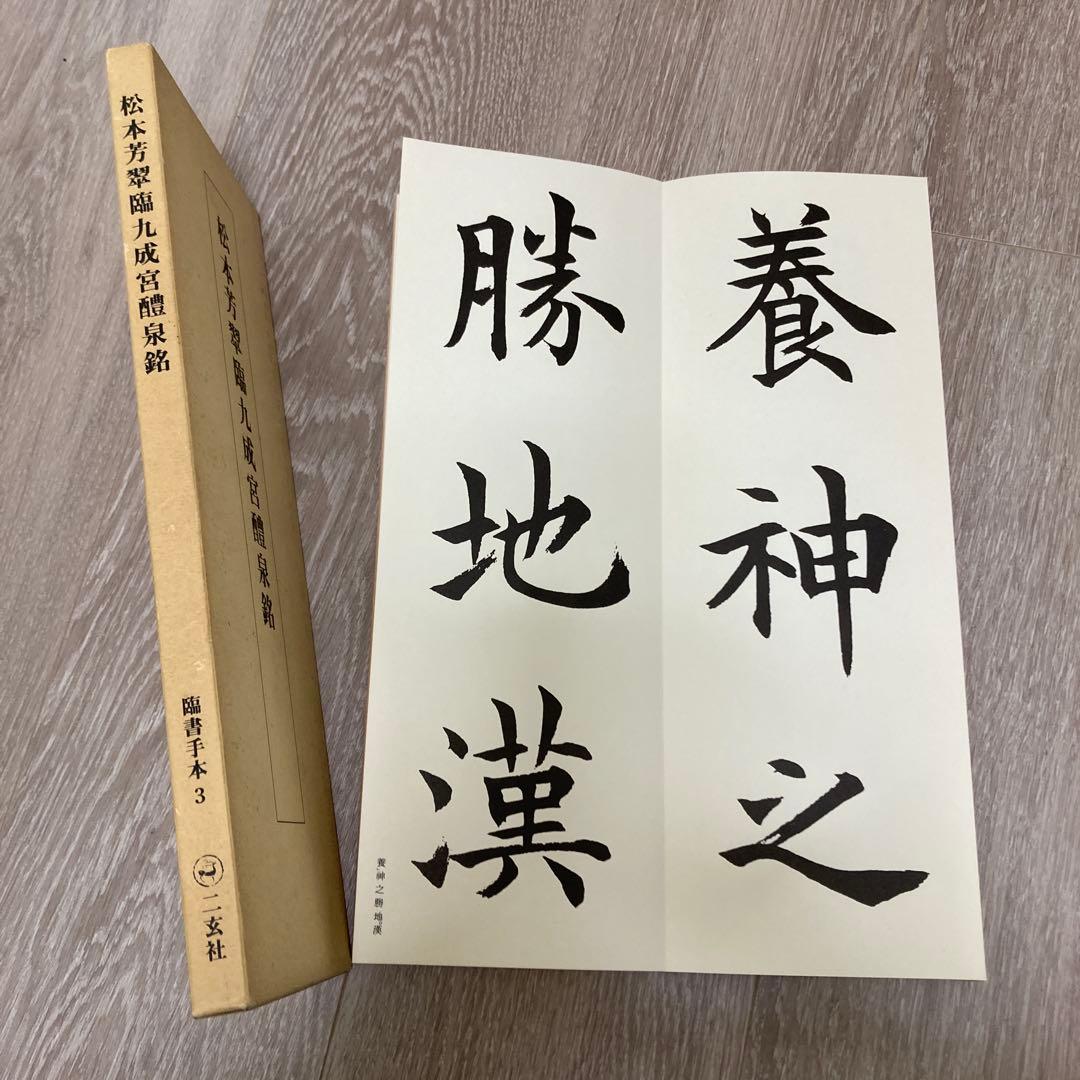 松本芳翠臨九成宮醴泉銘
臨書手本 3
二玄社
松本芳翠臨九成宮醴泉銘
養神之
勝地漢
養神之勝地漢